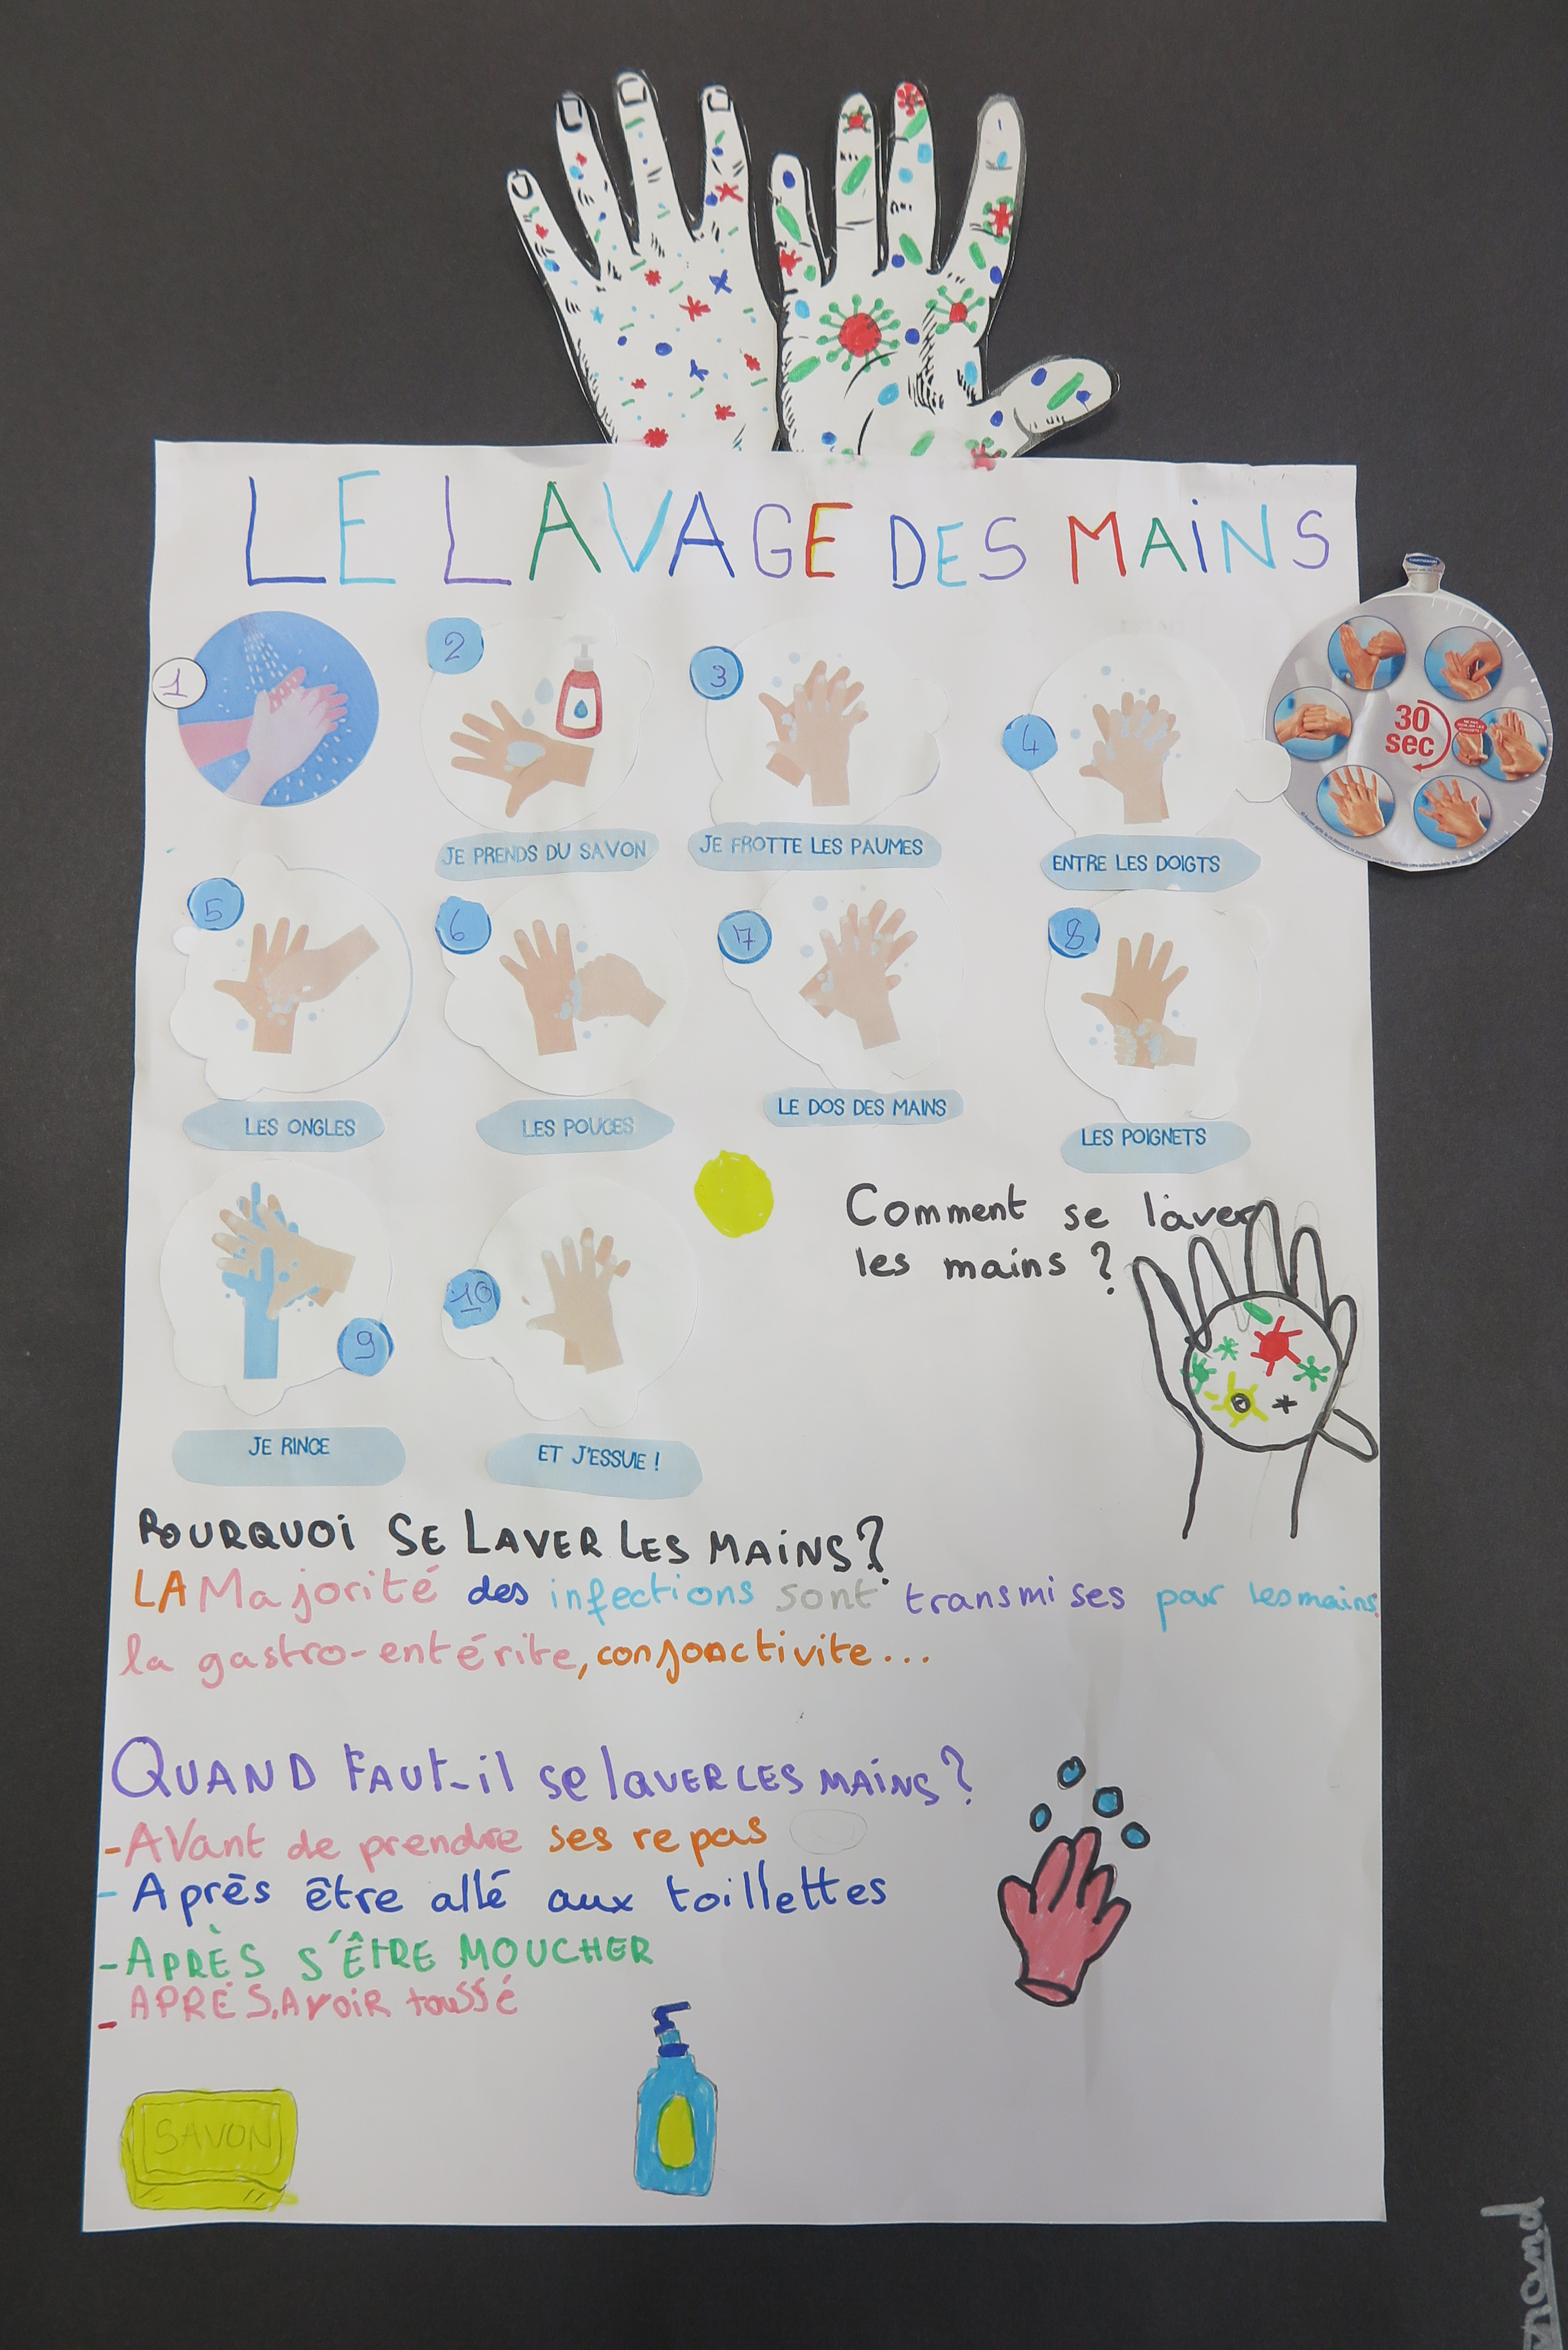 LE LAVAGE DES MAINS
1
2
3
4
30
sec
JE PRENDS DU SAVON
JE FROTTE LES PAUMES
ENTRE LES DOIGTS
5
6
7
8
LES ONGLES
LES POUCES
LE DOS DES MAINS
LES POIGNETS
Comment se laver
les mains ?
9
10
JE RINCE
ET J'ESSUIE !
POURQUOI SE LAVER LES MAINS ?
LA Majorité des infections sont transmises par les mains.
la gastro-entérite, conjonctivite...
QUAND FAUT-il se laVER LES MAINS ?
- AVant de prendre ses repas
- Après être allé aux toillettes
- APRÈS S'ÊTRE MOUCHER
- APRÈS AVOIR toussé
SAVON